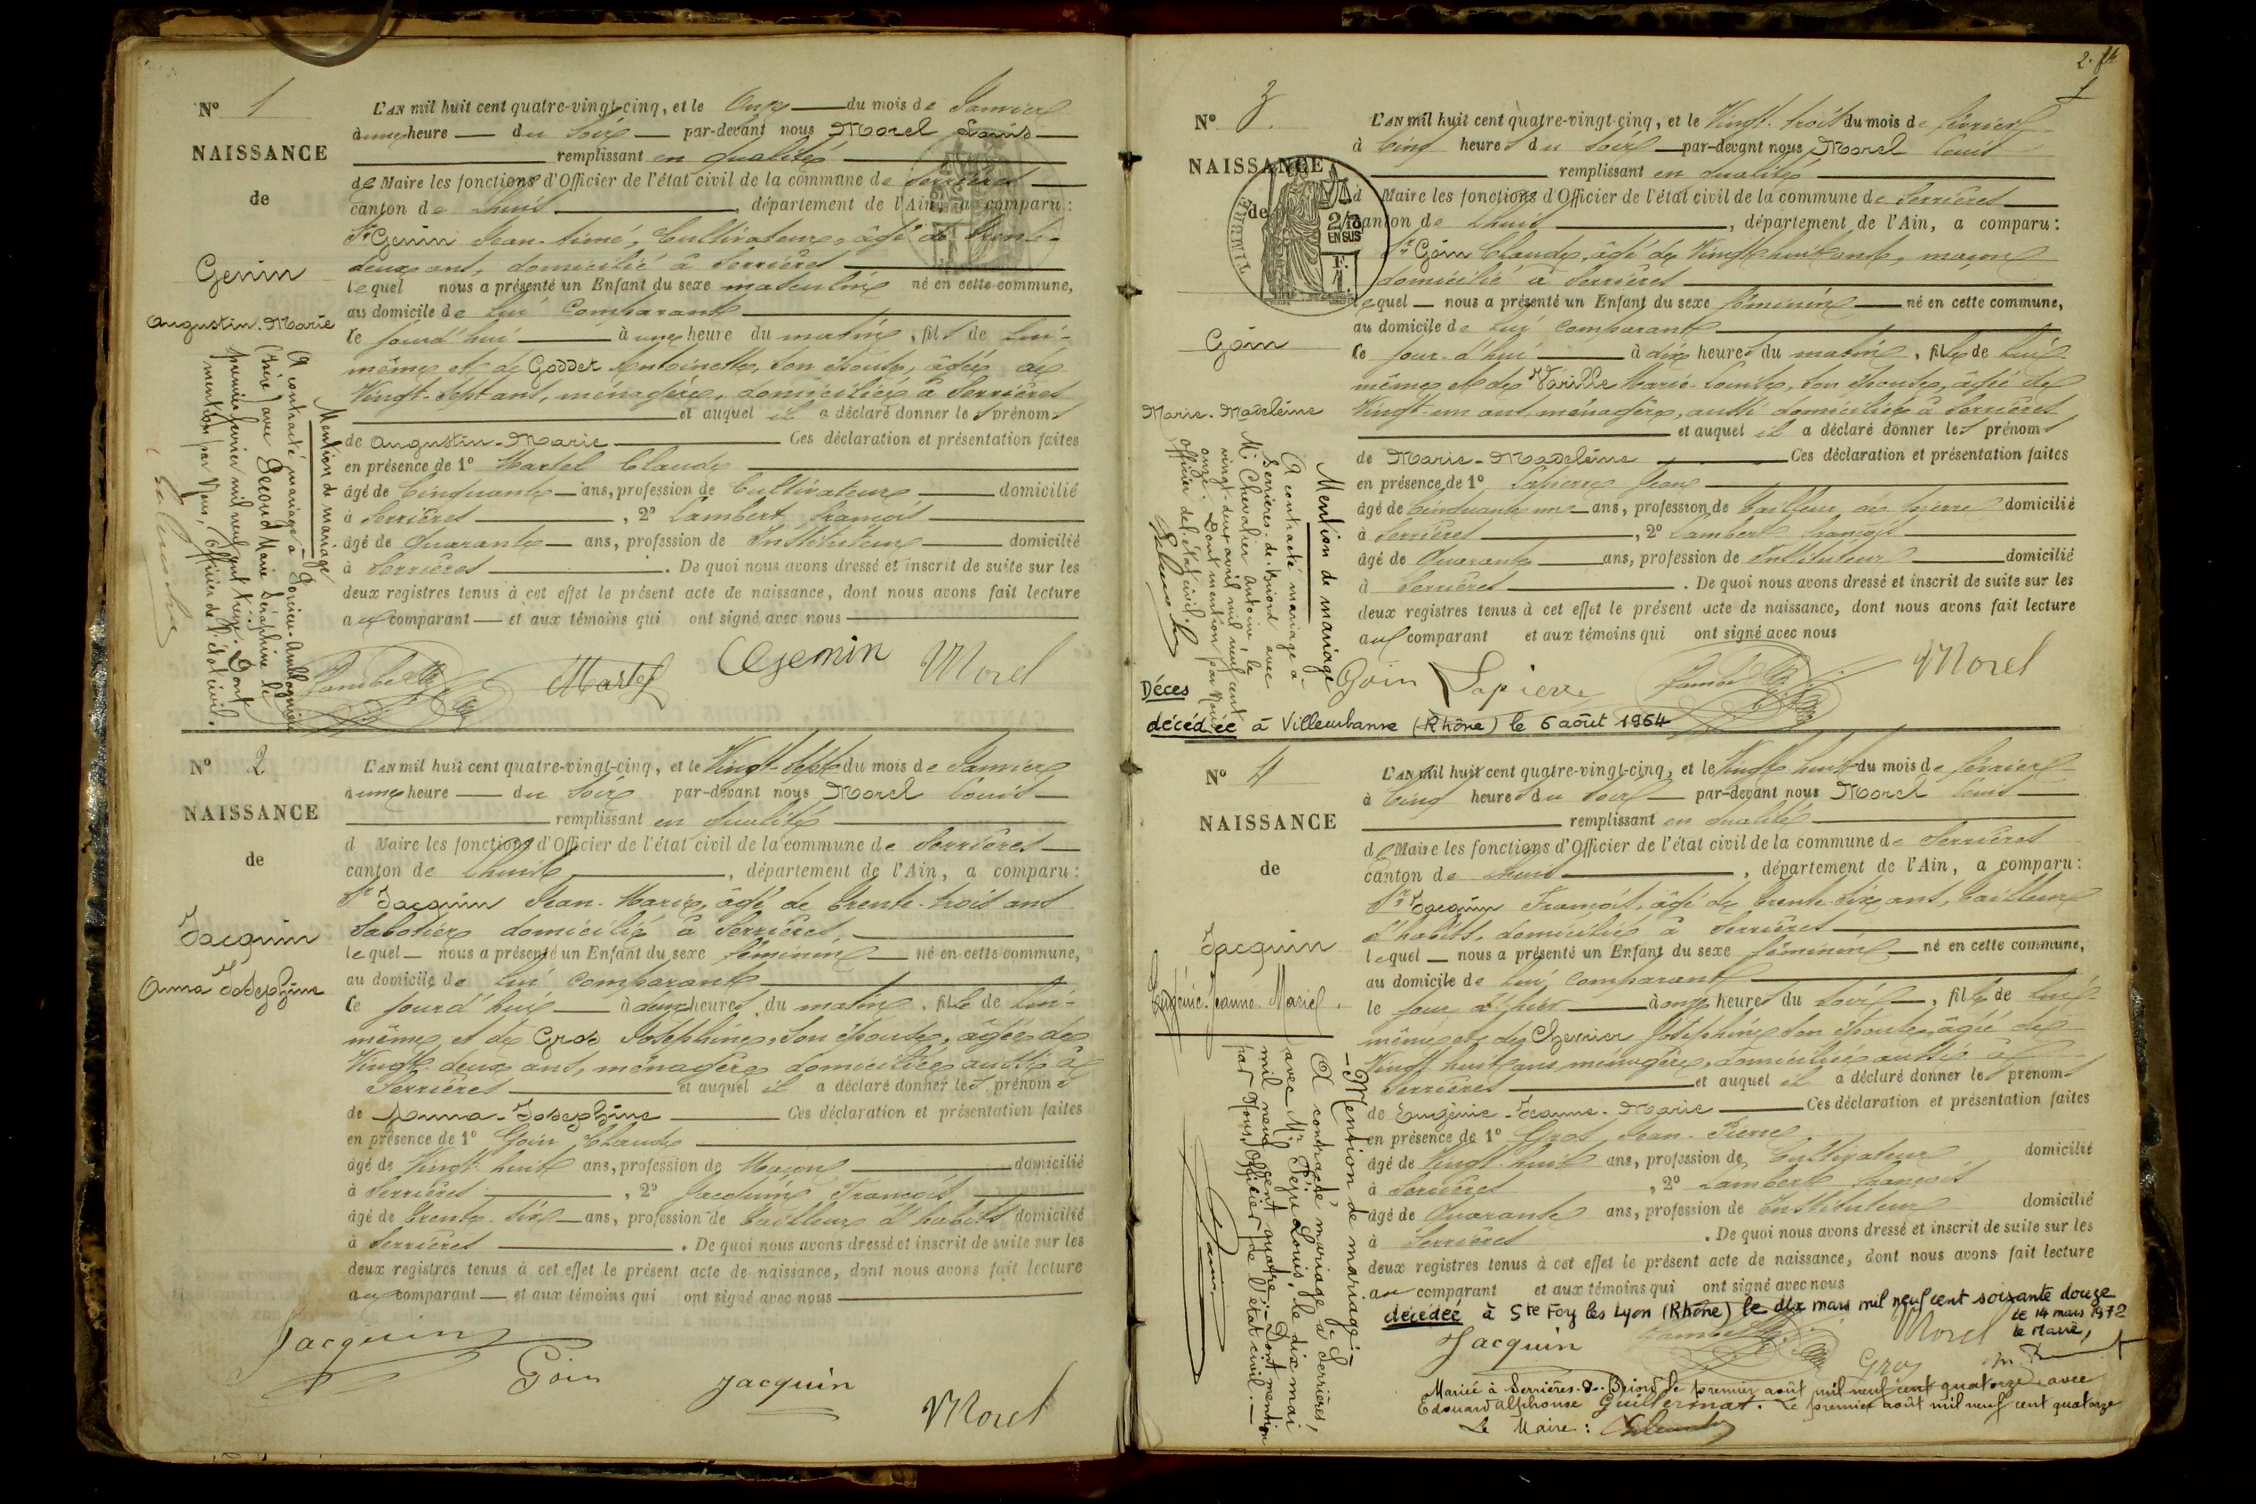 N° 1
NAISSANCE
de
Genin
Augustin-Marie
L'AN mil huit cent quatre-vingt-cinq, et le Onze du mois de Janvier
à une heure du soir par-devant nous Morel Louis
remplissant en qualité
de Maire les fonctions d'Officier de l'état civil de la commune de Serrières
canton de Lhuis, département de l'Ain, a comparu:
Sr Genin Jean-Aimé, Cultivateur, âgé de trente-
deux ans, domicilié à Serrières
lequel nous a présenté un Enfant du sexe masculin né en cette commune,
au domicile de lui comparant
le jourd'hui à une heure du matin, fils de lui-
même et de Goddet Antoinette, son épouse, âgée de
Vingt-sept ans, ménagère, domiciliée à Serrières
et auquel il a déclaré donner les prénoms
de Augustin-Marie Ces déclaration et présentation faites
en présence de 1° Martel Claude
âgé de Cinquante ans, profession de Cultivateur domicilié
à Serrières, 2° Lambert François
âgé de Quarante ans, profession de Instituteur domicilié
à Serrières. De quoi nous avons dressé et inscrit de suite sur les
deux registres tenus à cet effet le présent acte de naissance, dont nous avons fait lecture
au comparant et aux témoins qui ont signé avec nous
Lambert Martel Genin Morel
Mention de mariage
A contracté mariage à Porcieu-Amblagnieu
(Isère) avec Second Marie Séraphine le
premier février mil neuf cent treize. Dont
mention par Nous, Officier de l'état civil.
N° 2
NAISSANCE
de
Jacquin
Anna Joséphine
L'AN mil huit cent quatre-vingt-cinq, et le Vingt-Sept du mois de Janvier
à une heure du soir par-devant nous Morel Louis
remplissant en qualité
d Maire les fonctions d'Officier de l'état civil de la commune de Serrières
canton de Lhuis, département de l'Ain, a comparu:
Sr Jacquin Jean-Marie, âgé de trente-trois ans
Sabotier domicilié à Serrières
lequel nous a présenté un Enfant du sexe féminin né en cette commune,
au domicile de lui comparant
le jourd'hui à deux heures du matin, fille de lui-
même et de Gros Joséphine, son épouse, âgée de
Vingt-deux ans, ménagère domiciliée aussi à
Serrières et auquel il a déclaré donner les prénoms
de Anna-Joséphine Ces déclaration et présentation faites
en présence de 1° Goin Claude
âgé de Vingt-huit ans, profession de Maçon domicilié
à Serrières, 2° Jacquin François
âgé de Trente-six ans, profession de Tailleur d'habits domicilié
à Serrières. De quoi nous avons dressé et inscrit de suite sur les
deux registres tenus à cet effet le présent acte de naissance, dont nous avons fait lecture
au comparant et aux témoins qui ont signé avec nous
Jacquin Goin Jacquin Morel
2.
N° 3
NAISSANCE
de
TIMBRE
2/10 EN SUS
Goin
Marie-Madeleine
L'AN mil huit cent quatre-vingt-cinq, et le Vingt-trois du mois de février
à Cinq heures du soir par-devant nous Morel Louis
remplissant en qualité
d Maire les fonctions d'Officier de l'état civil de la commune de Serrières
canton de Lhuis, département de l'Ain, a comparu:
Sr Goin Claude, âgé de Vingt-huit ans, maçon
domicilié à Serrières
lequel nous a présenté un Enfant du sexe féminin né en cette commune,
au domicile de lui comparant
le jour-d'hui à dix heures du matin, fille de lui-
même et de Varille Marie-Louise, son épouse, âgée de
Vingt-un ans ménagère, aussi domiciliée à Serrières
et auquel il a déclaré donner les prénoms
de Marie-Madeleine Ces déclaration et présentation faites
en présence de 1° Lapierre Jean
âgé de Cinquante un ans, profession de Tailleur de pierre domicilié
à Serrières, 2° Lambert François
âgé de Quarante ans, profession de Instituteur domicilié
à Serrières. De quoi nous avons dressé et inscrit de suite sur les
deux registres tenus à cet effet le présent acte de naissance, dont nous avons fait lecture
au comparant et aux témoins qui ont signé avec nous
Goin Lapierre Lambert Morel
Mention de mariage
A contracté mariage à
Serrières-de-Briord avec
Mr Chevalier Antoine, le
vingt-deux avril mil neuf cent
onze. Dont mention par Nous
Officier de l'état civil.
Déces
décédée à Villeurbanne (Rhône) le 6 août 1964
N° 4
NAISSANCE
de
Jacquin
Eugénie-Jeanne-Marie
L'AN mil huit cent quatre-vingt-cinq, et le Vingt-huit du mois de février
à Cinq heures du soir par-devant nous Morel Louis
remplissant en qualité
d Maire les fonctions d'Officier de l'état civil de la commune de Serrières
canton de Lhuis, département de l'Ain, a comparu:
Sr Jacquin François, âgé de trente-six ans, Tailleur
d'habits, domicilié à Serrières
lequel nous a présenté un Enfant du sexe féminin né en cette commune,
au domicile de lui comparant
le jour d'hier à onze heures du soir, fille de lui-
même et de Chevrier Joséphine son épouse, âgée de
Vingt huit ans ménagère, domiciliée aussi à
Serrières et auquel il a déclaré donner les prénoms
de Eugénie-Jeanne-Marie Ces déclaration et présentation faites
en présence de 1° Gros Jean-Pierre
âgé de Vingt-huit ans, profession de Cultivateur domicilié
à Serrières, 2° Lambert François
âgé de Quarante ans, profession de Instituteur domicilié
à Serrières. De quoi nous avons dressé et inscrit de suite sur les
deux registres tenus à cet effet le présent acte de naissance, dont nous avons fait lecture
au comparant et aux témoins qui ont signé avec nous
décédée à Ste Foy les Lyon (Rhône) le dix mars mil neuf cent soixante douze
le 14 mars 1972
le Maire,
Jacquin Lambert Morel
Gros
Mariée à Serrières-de-Briord le premier août mil neuf cent quatorze avec
Edouard Alphonse Guillermat. Le premier août mil neuf cent quatorze
Le Maire:
Mention de mariage:
A contracté mariage à Serrières,
avec Mr Péju Louis, le dix mai
mil neuf cent quatre. Dont mention
par Nous, Officier de l'état civil.